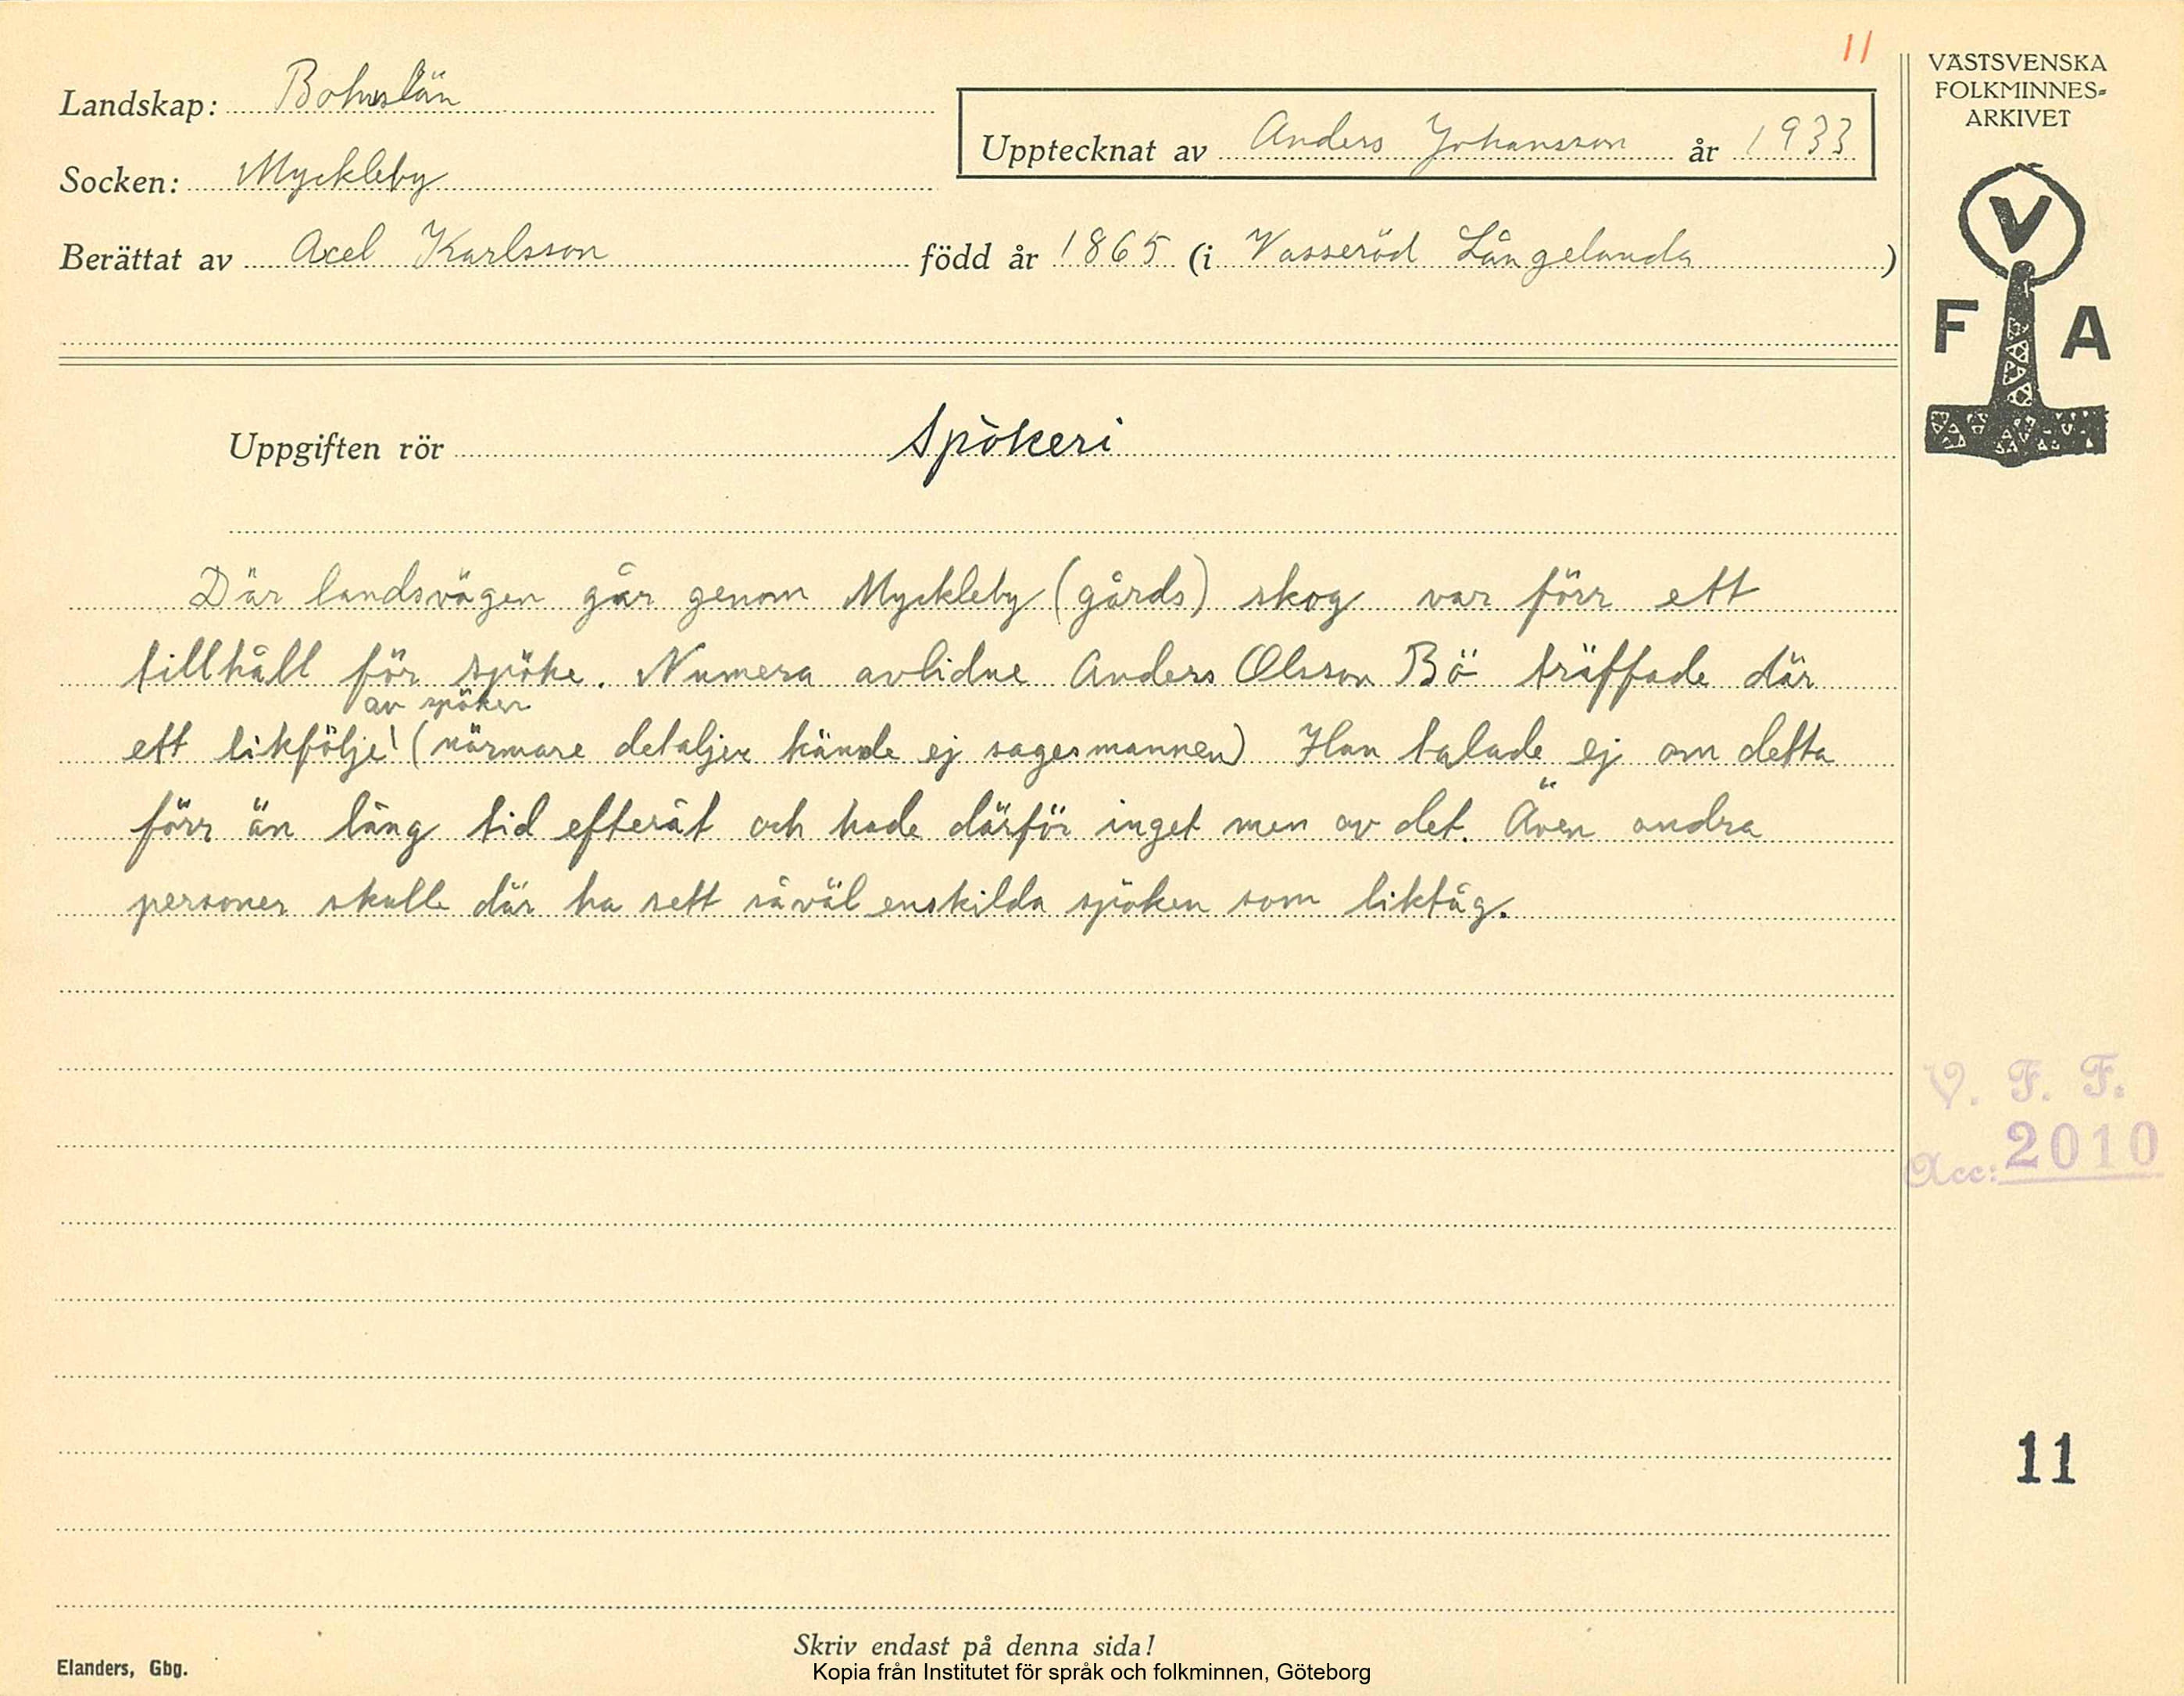 11
Landskap: Bohuslän
Upptecknat av Anders Johansson år 1933
Socken: Myckleby
Berättat av Axel Karlsson född år 1865 (i Vasseröd Långelanda)
Uppgiften rör Spökeri
Där landsvägen går genom Myckleby (gårds) skog var förr ett
tillhåll för spöke. Numera avlidne Anders Olsson Bö träffade där
av spöken
ett likfölje! (närmare detaljer kände ej sagesmannen) Han talade ej om detta
förr än lång tid efteråt och hade därför inget men av det. Även andra
personer skulle där ha sett såväl enskilda spöken som liktåg.
Skriv endast på denna sida!
Elanders, Gbg.
Kopia från Institutet för språk och folkminnen, Göteborg
VÄSTSVENSKA
FOLKMINNES-
ARKIVET
V
F A
V. F. F.
Acc: 2010
11